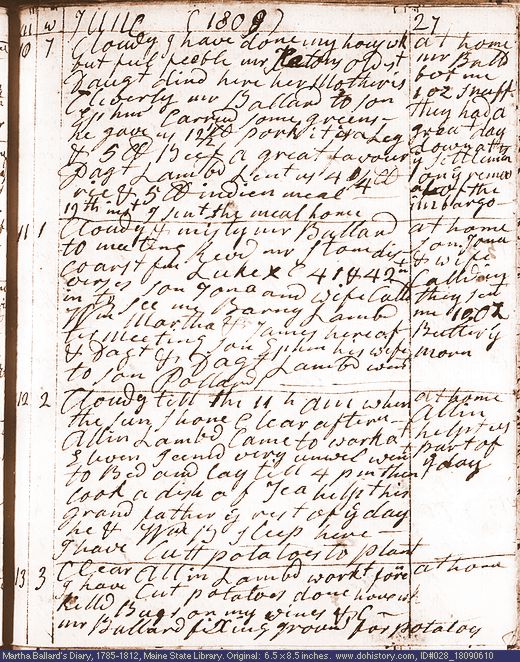 June (1809)
27
10 7 Cloudy I have done my houswk
but feel feeble mr
Daugt Lind here her Mother is
mr Ballard to son
Ephm Carried some greens
he gave us 12 lb pork it is a Leg
& 5 lb Beef a great favour
Dagt Lambd Lent us 4 1/4 lb
& 5 lb indien meal
19th inst I sent the meal home
at home
mr Balld
bot me
1 oz snuff
they had a
great day
down at
y settlemen
on y remov
al of the
imbargo
11 1 Cloudy & misty mr Ballard
to meeting Revd mr Stone dis
coarst from Luke X C 41 & 42
verses son Jona and wife Calld
in to see us Barny Lambd
to meeting James here af
& Dagt & son Ephm his wife
to son Pollard Lambd went
at home
son Jona
& wife
Calld in
they sent
me 19 oz
Butter y
morn
12 2 Cloudy till the 11 h am when
the sun shone Clear after
Allin Lambd Came to work a
& even seemd very unwel went
to Bed and lay till 4 pm then
took a dish of Tea helpt his
grand father y rest of y day
he & Wm is sleep here
I have Cutt potatoes to plant
at home
Allin
helpt us
part of
y day
13 3 Clear Allin Lambd workt fore
I have Cut potatoes done housewk
killd Bugs on my vines &c
mr Ballard fixing ground for potatoes
at home
Martha Ballard's Diary, 1785-1812, Maine State Library. Original: 6.5 x 8.5 inches. www.dohistory.com, ID#028_18090610